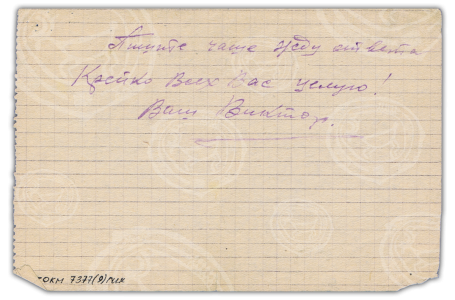 Пишите чаще жду ответа
Крепко Всех Вас целую!
Ваш Виктор.
ТОКМ 7377(9)